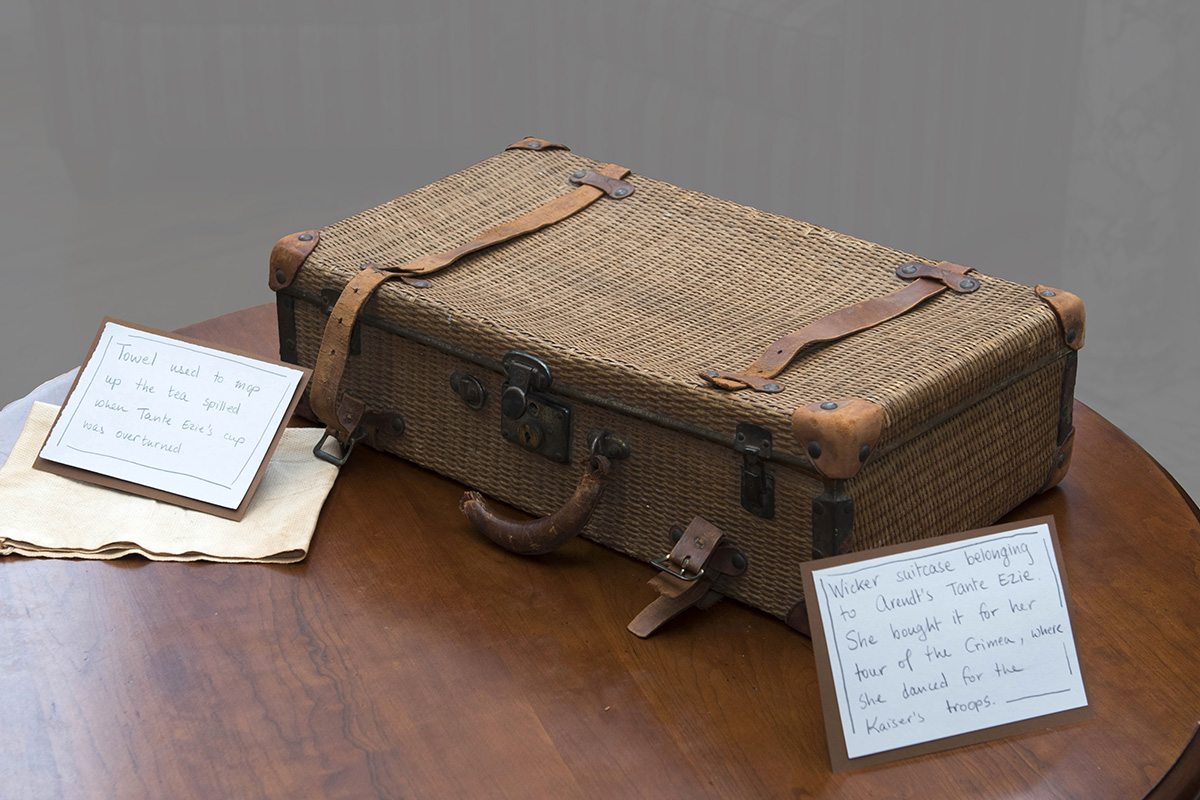 Towel used to mop
up the tea spilled
when Tante Ezie's cup
was overturned
Wicker suitcase belonging
to Arendt's Tante Ezie.
She bought it for her
tour of the Crimea, where
she danced for the
Kaiser's troops.